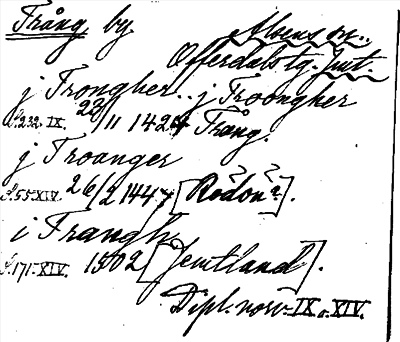 Trång by. Albens sn.
Offerdals tg. Jmt.
j Trongher.. j Troongher
S. 232. IX. 22/11 1424 Trång.
j Troanger
S. 55. XIV. 26/2 1447 [Rödön?].
i Trangh
S. 171. XIV. 1502 [Jemtland].
Dipl. norv. IX o. XIV.